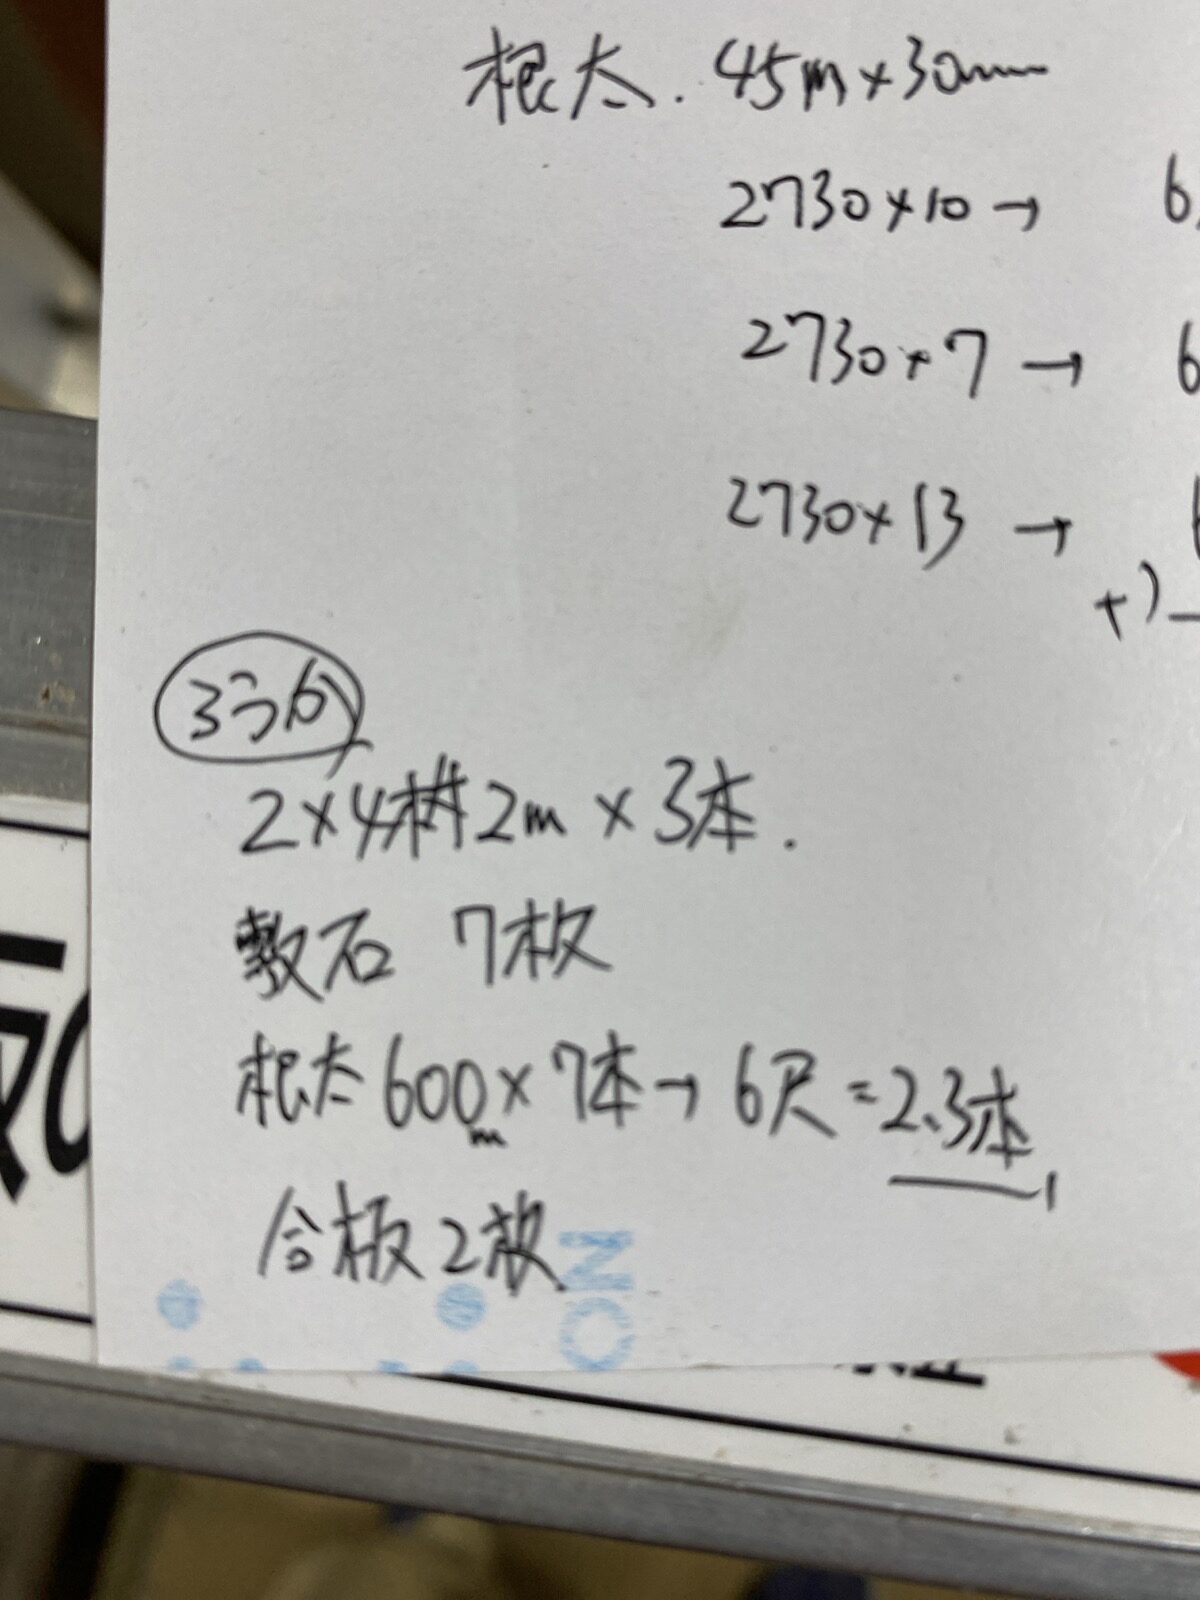 根太. 45m×30mm
2730×10→ 6
2730×7 → 6
2730×13 →
+)
2×4材 2m × 3本.
敷石 7枚
根太 600m × 7本→ 6尺 = 2.3本
合板 2枚
NO